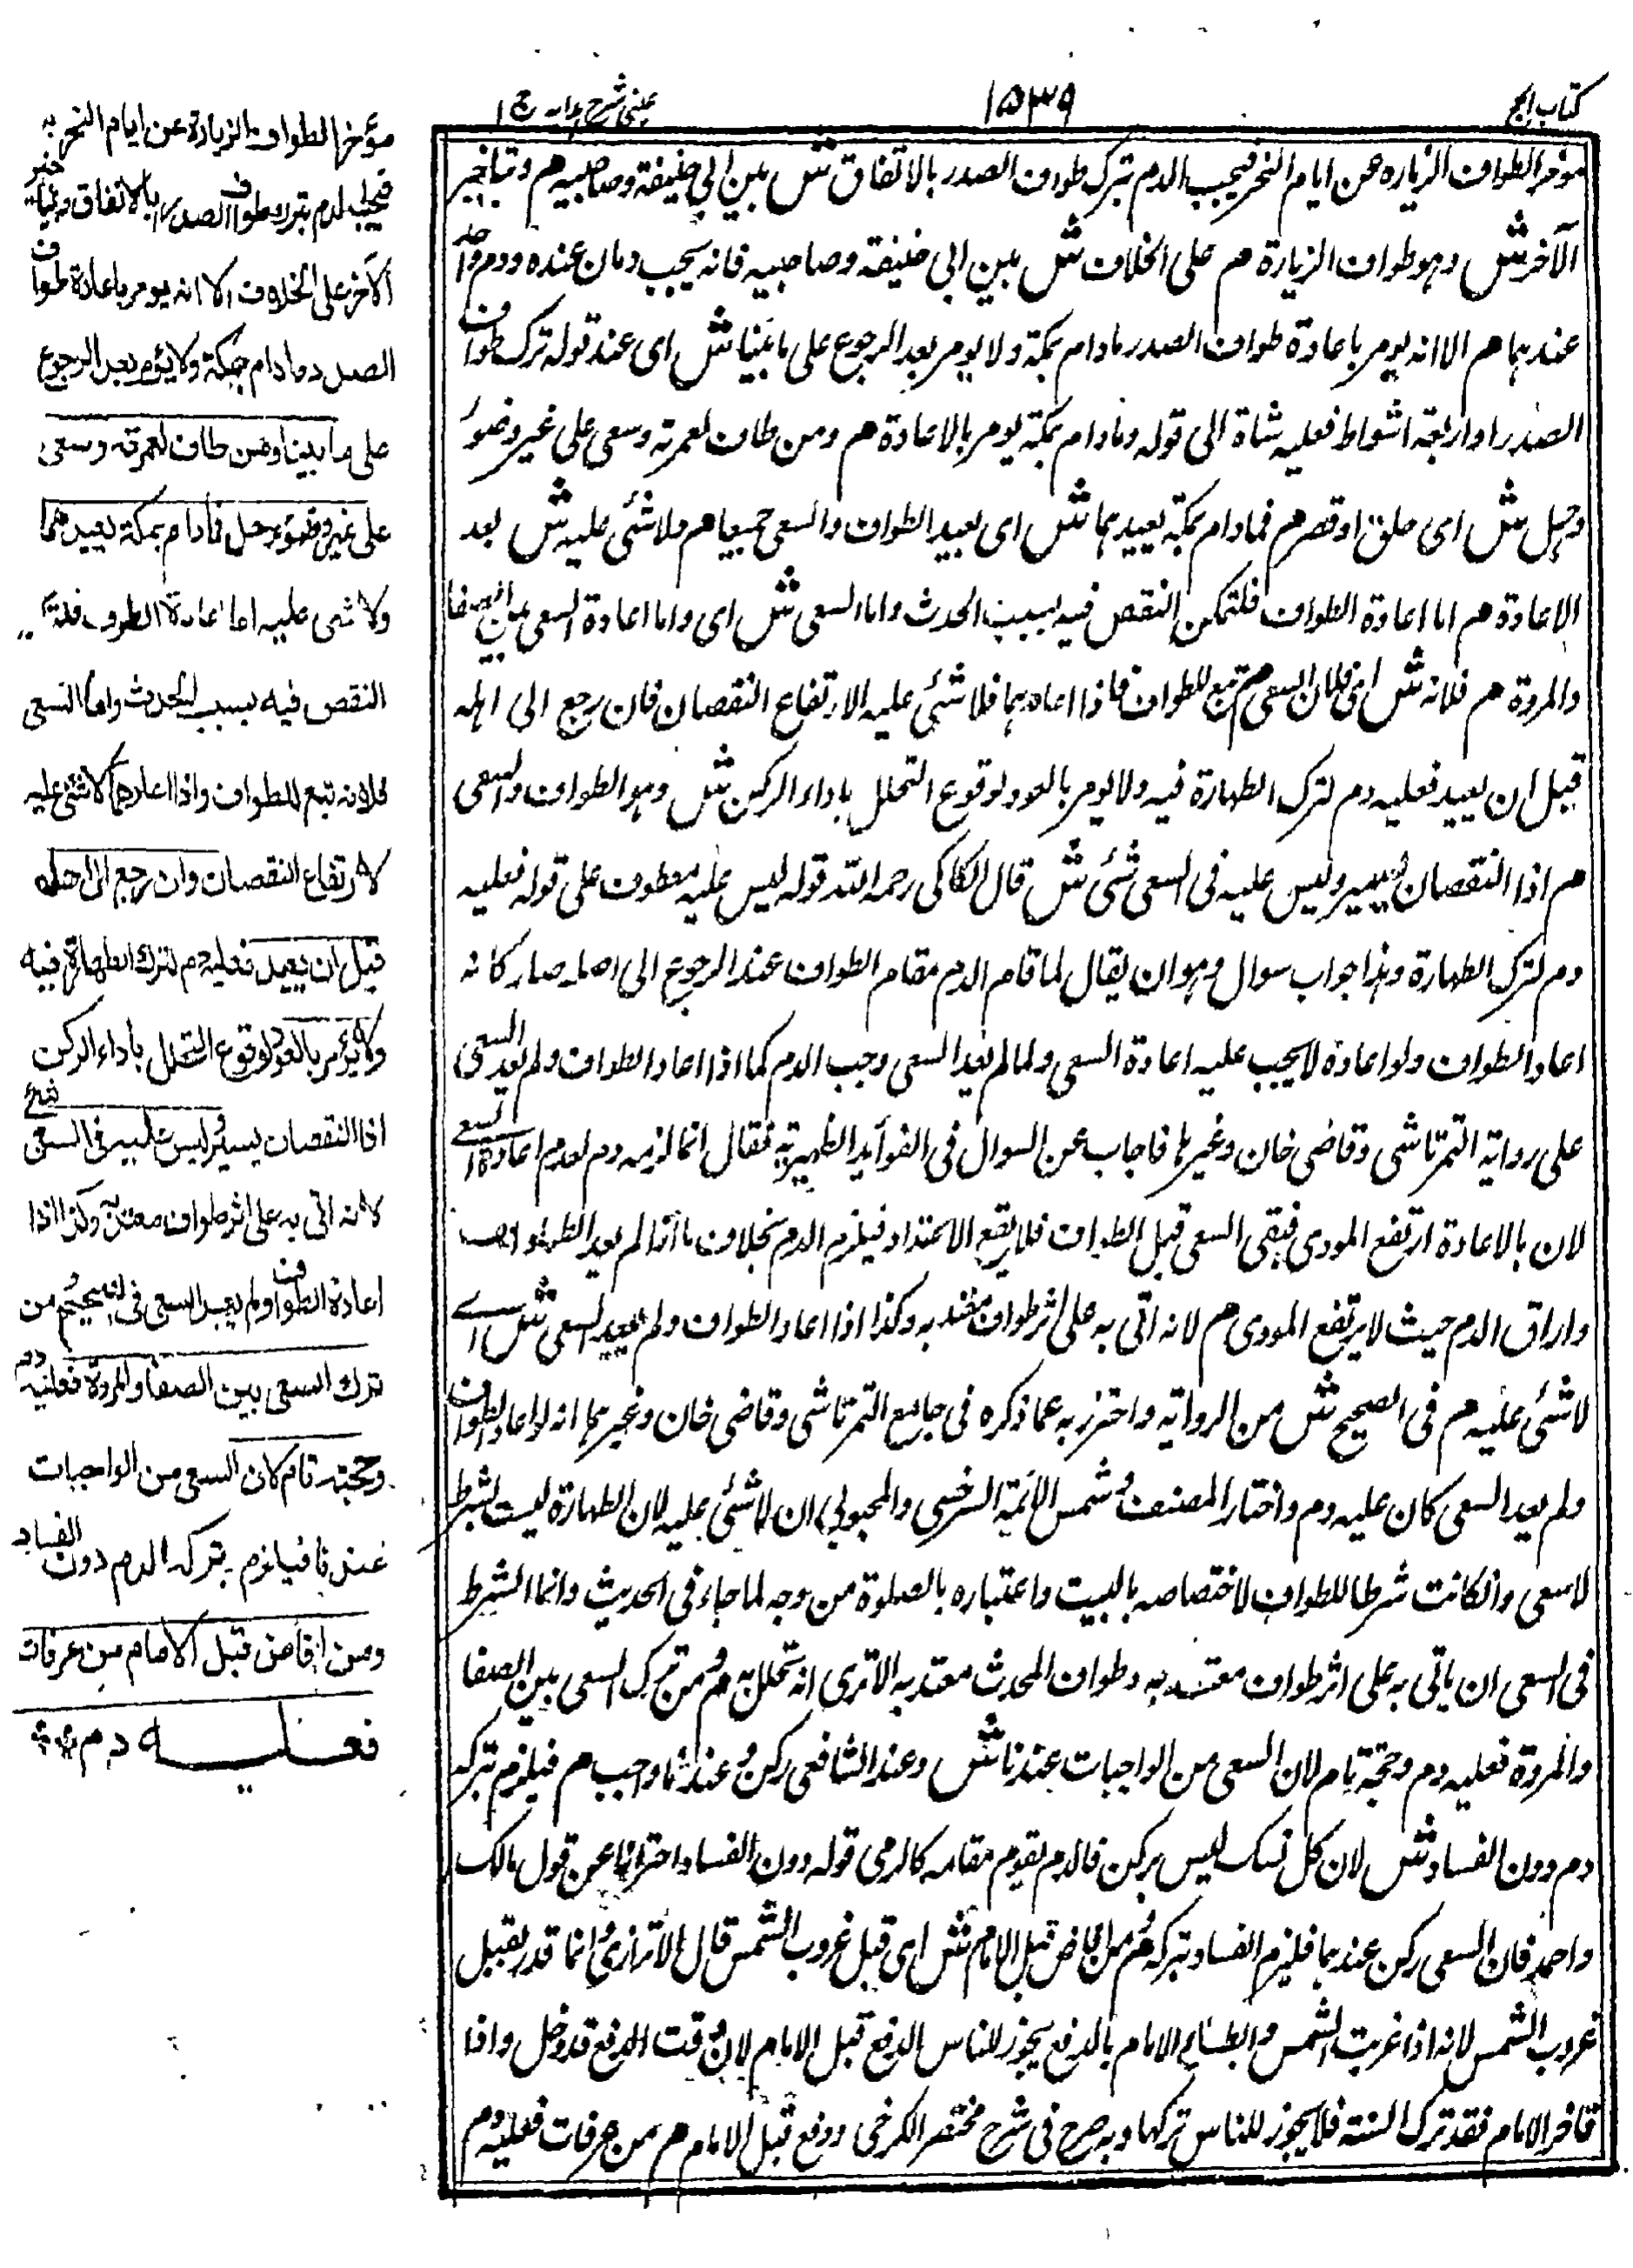 كتاب الحج
١٥٣٩
عینی شرح ہدایہ ج ١
مؤخر الطواف الزیارہ عن ایام النحر فیجب الدم بترک طواف الصدر بالاتفاق ش بین ابی حنیفۃ وصاحبیہ م وبتاخیر
الآخر ش وہو طواف الزیارۃ م علی الخلاف ش بین ابی حنیفۃ وصاحبیہ فانہ یجب دمان عندہ ودم واحد
عندہما م الا انہ یومر باعادۃ طواف الصدر مادام بمکۃ ولا یومر بعد الرجوع علی ما بینا ش ای عند قولہ ترک طواف
الصدر او اربعۃ اشواط فعلیہ شاۃ الی قولہ ومادام بمکۃ یومر بالاعادۃ م ومن طاف لعمرتہ وسعی علی غیر وضوء
وحل ش ای حلق او قصر م فمادام بمکۃ یعیدہما ش ای یعید الطواف والسعی جمیعا م ولا شئی علیہ ش بعد
الاعادۃ م اما اعادۃ الطواف فلتمکن النقص فیہ بسبب الحدث واما السعی ش ای واما اعادۃ السعی بین الصفا
والمروۃ م فلانہ ش ای فلان السعی م تبع للطواف فاذا اعادہما فلا شئی علیہ لارتفاع النقصان فان رجع الی اہلہ
قبل ان یعید فعلیہ دم لترک الطہارۃ فیہ ولا یومر بالعود لوقوع التحلل باداء الرکن ش وہو الطواف والسعی
م اذا النقصان یسیر ولیس علیہ فی السعی شئی ش قال الکاکی رحمہ اللہ قولہ لیس علیہ معطوف علی قولہ فعلیہ
دم لترک الطہارۃ وہذا جواب سوال وہو ان یقال لما قام الدم مقام الطواف عند الرجوع الی اہلہ صار کانہ
اعاد الطواف ولو اعادہ لا یجب علیہ اعادۃ السعی ولما لم یعد السعی وجب الدم کما اذا اعاد الطواف ولم یعد السعی
علی روایۃ التمرتاشی وقاضی خان وغیرہما فاجاب عن السوال فی الفوائد الظہیریۃ فقال انما لزمہ دم لعدم اعادۃ السعی
لان بالاعادۃ ارتفع المودی فبقی السعی قبل الطواف فلا یقع الاعتداد فیلزم الدم بخلاف ما اذا لم یعد الطواف
واراق الدم حیث لا یرتفع المودی م لانہ اتی بہ علی اثر طواف معتد بہ وکذا اذا اعاد الطواف ولم یعید السعی ش ای
لا شئی علیہ م فی الصحیح ش من الروایۃ واحترز بہ عما ذکرہ فی جامع التمرتاشی وقاضی خان وغیرہما انہ لو اعاد الطواف
ولم یعید السعی کان علیہ دم واختار المصنف وشمس الائمۃ السرخسی والمحبوبی ان لا شئی علیہ لان الطہارۃ لیست بشرط
لاسعی وانکانت شرطا للطواف لاختصاصہ بالبیت واعتبارہ بالصلوۃ من وجہ لما جاء فی الحدیث وانما الشرط
فی السعی ان یاتی بہ علی اثر طواف معتد بہ وطواف المحدث معتد بہ الا تری انہ تحلل بہ م ومن ترک السعی بین الصفا
والمروۃ فعلیہ دم وحجۃ تام لان السعی من الواجبات عندنا ش وعند الشافعی رکن وعندنا واجب م فیلزم بترکہ
دم دون الفساد ش لان کل نسک لیس برکن فالدم یقوم مقامہ کالرمی قولہ دون الفساد احترازا عن قول مالک
واحمد فان السعی رکن عندہما فیلزم الفساد بترکہ م ومن افاض قبل الامام ش ای قبل غروب الشمس قال الاترازی انما قدر بقبل
غروب الشمس لانہ اذا غربت الشمس وابطاء الامام بالدفع یجوز للناس الدفع قبل الامام لان وقت الدفع قد دخل واذا
تاخر الامام فقد ترک السنۃ فلا یجوز للناس ترکہا وبہ صرح فی شرح مختصر الکرخی ودفع قبل الامام م من عرفات فعلیہ دم
مؤخر الطواف الزیارۃ عن ایام النحر
فیجب الدم بترک طواف الصدر بالاتفاق وبتاخیر
الآخر علی الخلاف الا انہ یومر باعادۃ طواف
الصدر مادام بمکۃ ولا یؤمر بعد الرجوع
علی ما بینا ومن طاف لعمرتہ وسعی
علی غیر وضوء وحل فمادام بمکۃ یعیدھما
ولا شئ علیہ اما اعادۃ الطواف فلتمکن
النقص فیہ بسبب الحدث واما السعی
فلانہ تبع للطواف واذا اعادھما لا شئ علیہ
لارتفاع النقصان وان رجع الی اھلہ
قبل ان یعید فعلیہ دم لترک الطھارۃ فیہ
ولا یؤمر بالعود لوقوع التحلل باداء الرکن
اذا النقصان یسیر ولیس علیہ فی السعی شئ
لانہ اتی بہ علی اثر طواف معتد بہ وکذا اذا
اعادۃ الطواف ولم یعد السعی فی الصحیح ومن
ترک السعی بین الصفا والمروۃ فعلیہ دم
وحجتہ تام لان السعی من الواجبات
عندنا فیلزم بترکہ الدم دون الفساد
ومن افاض قبل الامام من عرفات
فعلیہ دم